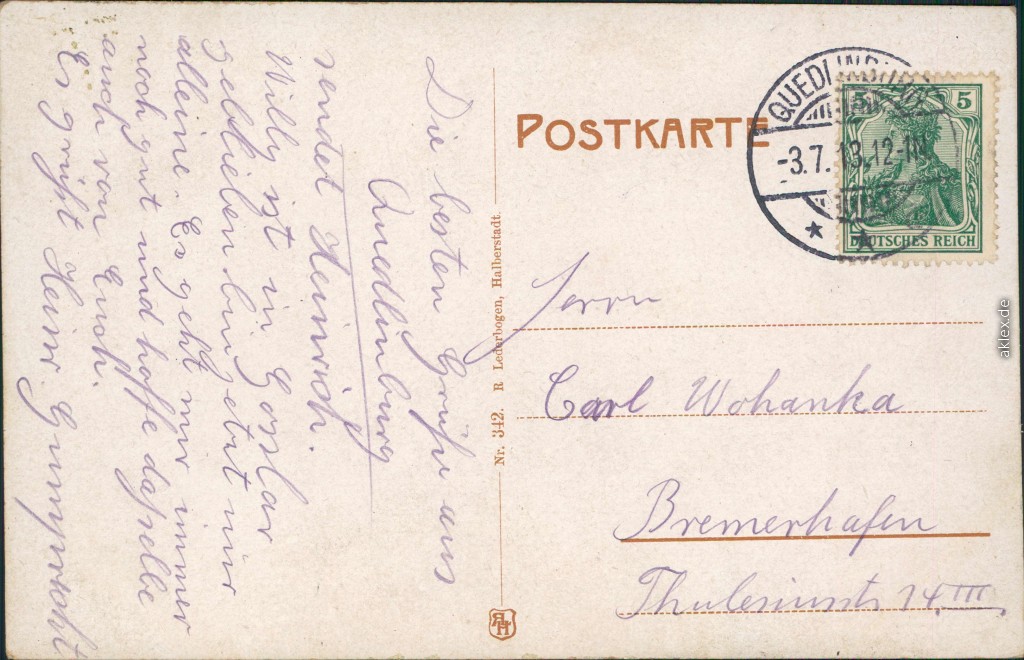 Die besten Grüße aus
Quedlinburg
sendet Heinrich.
Willy ist in Goslar
geblieben bin jetzt nur
alleine. Es geht mir immer
noch gut und hoffe daßelbe
auch von Euch.
Es grüßt Heinr.
Nr. 342. R Lederbogen, Halberstadt.
RLH
POSTKARTE
QUEDLINBURG
-3.7.13.12-1N
5 5
DEUTSCHES REICH
Herrn
Carl Wohanka
Bremerhafen
14.III.
aklex.de